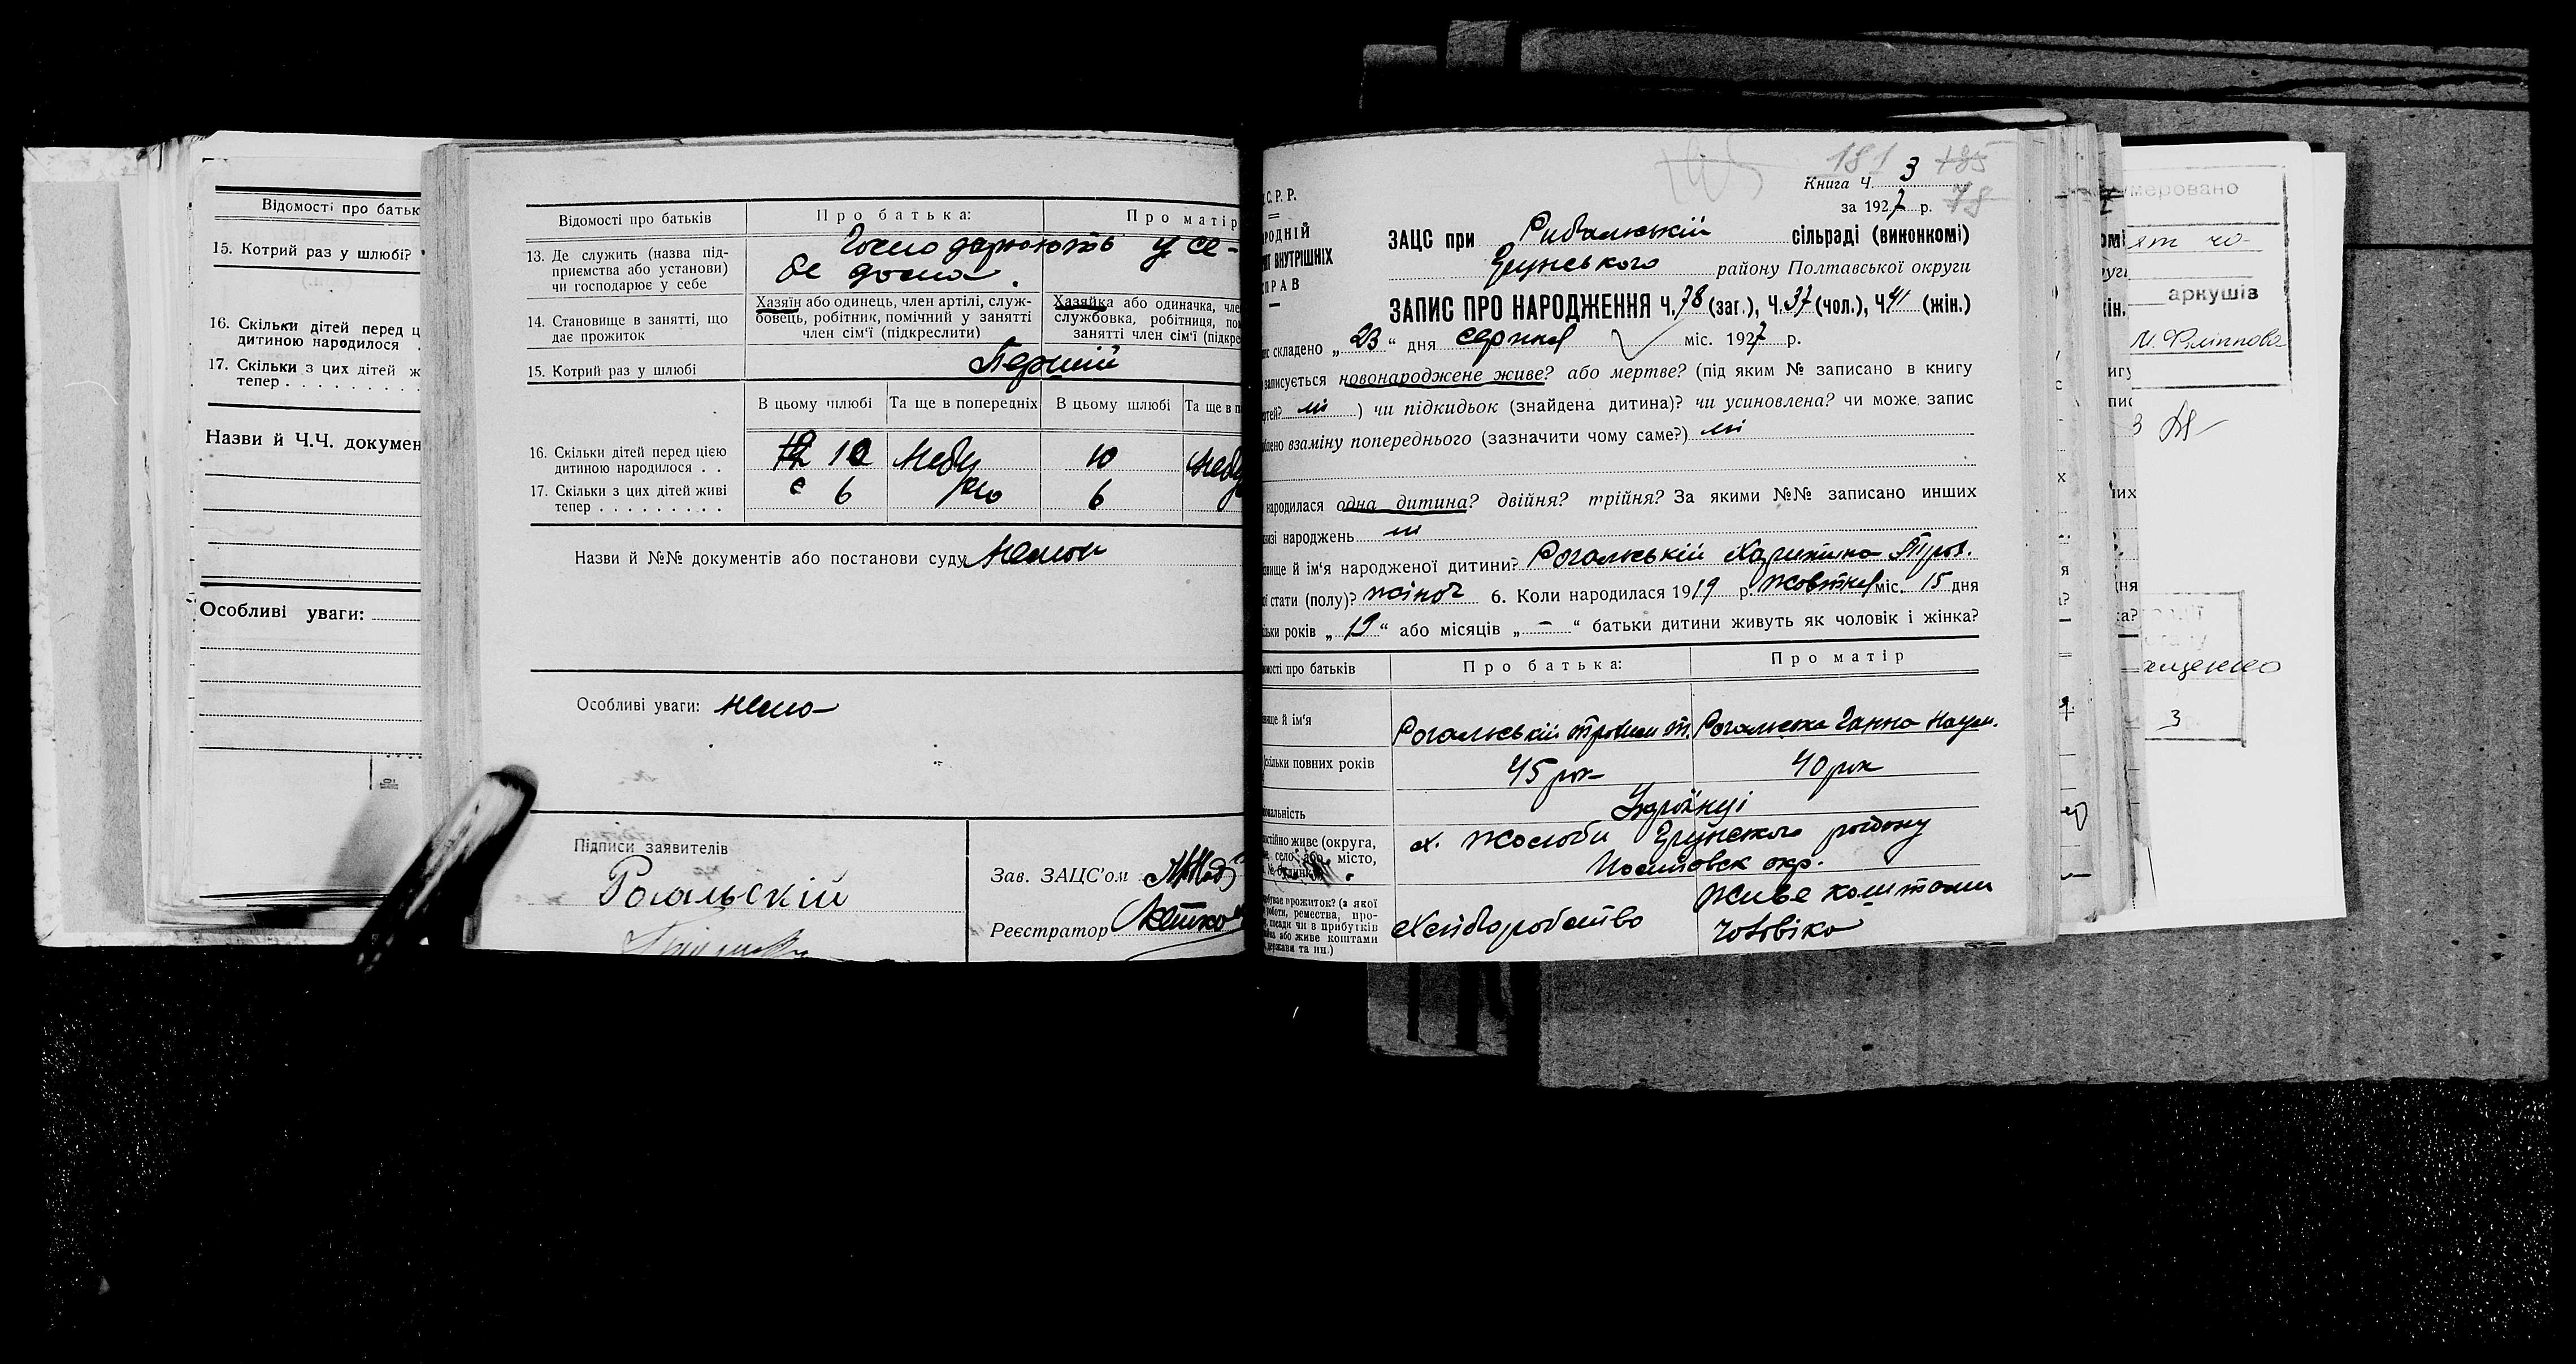 Відомості про батьк
15. Котрий раз у шлюбі?
16. Скільки дітей перед ц
дитиною народилося
17. Скільки з цих дітей ж
тепер
Назви й Ч.Ч. докумен
Особливі уваги:
Відомості про батьків
Про батька:
Про матір
13. Де служить (назва під-
приємства або установи)
чи господарює у себе
у се-
бе дома.
14. Становище в занятті, що
дає прожиток
Хазяїн або одинець, член артілі, служ-
бовець, робітник, помічний у занятті
член сім'ї (підкреслити)
Хазяйка або одиначка, чле
службовка, робітниця, по
занятті член сім'ї (підкре
15. Котрий раз у шлюбі
Перший
В цьому шлюбі
Та ще в попередніх
В цьому шлюбі
Та ще в п
16. Скільки дітей перед цією
дитиною народилося . .
10 небу 10 небу
17. Скільки з цих дітей живі
тепер
6 6
Назви й №№ документів або постанови суду
Особливі уваги: нема
Підписи заявителів
Рогальскій
Зав. ЗАЦС'ом
Реєстратор
С. Р. Р.
РОДНІЙ
ВНУТРІШНІХ
ПРАВ
181 185
Книга Ч. 3
за 1927 р. 78
ЗАЦС при Рибальській сільраді (виконкомі)
району Полтавської округи
ЗАПИС ПРО НАРОДЖЕННЯ Ч. 78 (заг.), Ч. 37 (чол.), Ч. 41 (жін.)
складено „23“ дня серпня міс. 1927 р.
записується новонароджене живе? або мертве? (під яким № записано в книгу
ні ) чи підкидьок (знайдена дитина)? чи усиновлена? чи може, запис
взаміну попереднього (зазначити чому саме?) ні
народилася одна дитина? двійня? трійня? За якими №№ записано инших
народжень ні
вище й ім'я народженої дитини? Рогальскій Харитина Троф.
стати (полу)? жіноч 6. Коли народилася 1919 р. жовтня міс. 15 дня
років „19“ або місяців „–“ батьки дитини живуть як чоловік і жінка?
мості про батьків
Про батька:
Про матір
вище й ім'я
Рогальський Трохим Т.
Рогальска Ганна Наум.
скільки повних років
45 рок
40 рок
нальність
Українці
стійно живе (округа,
село або місто,
№ будинк
х. Жолоби району
окр.
прожиток? (з якої
роботи, ремества, про-
посади чи в прибутків
або живе коштами
держави та ин.)
Хліборобство
живе коштами
чоловіка
меровано
аркушів
3
3